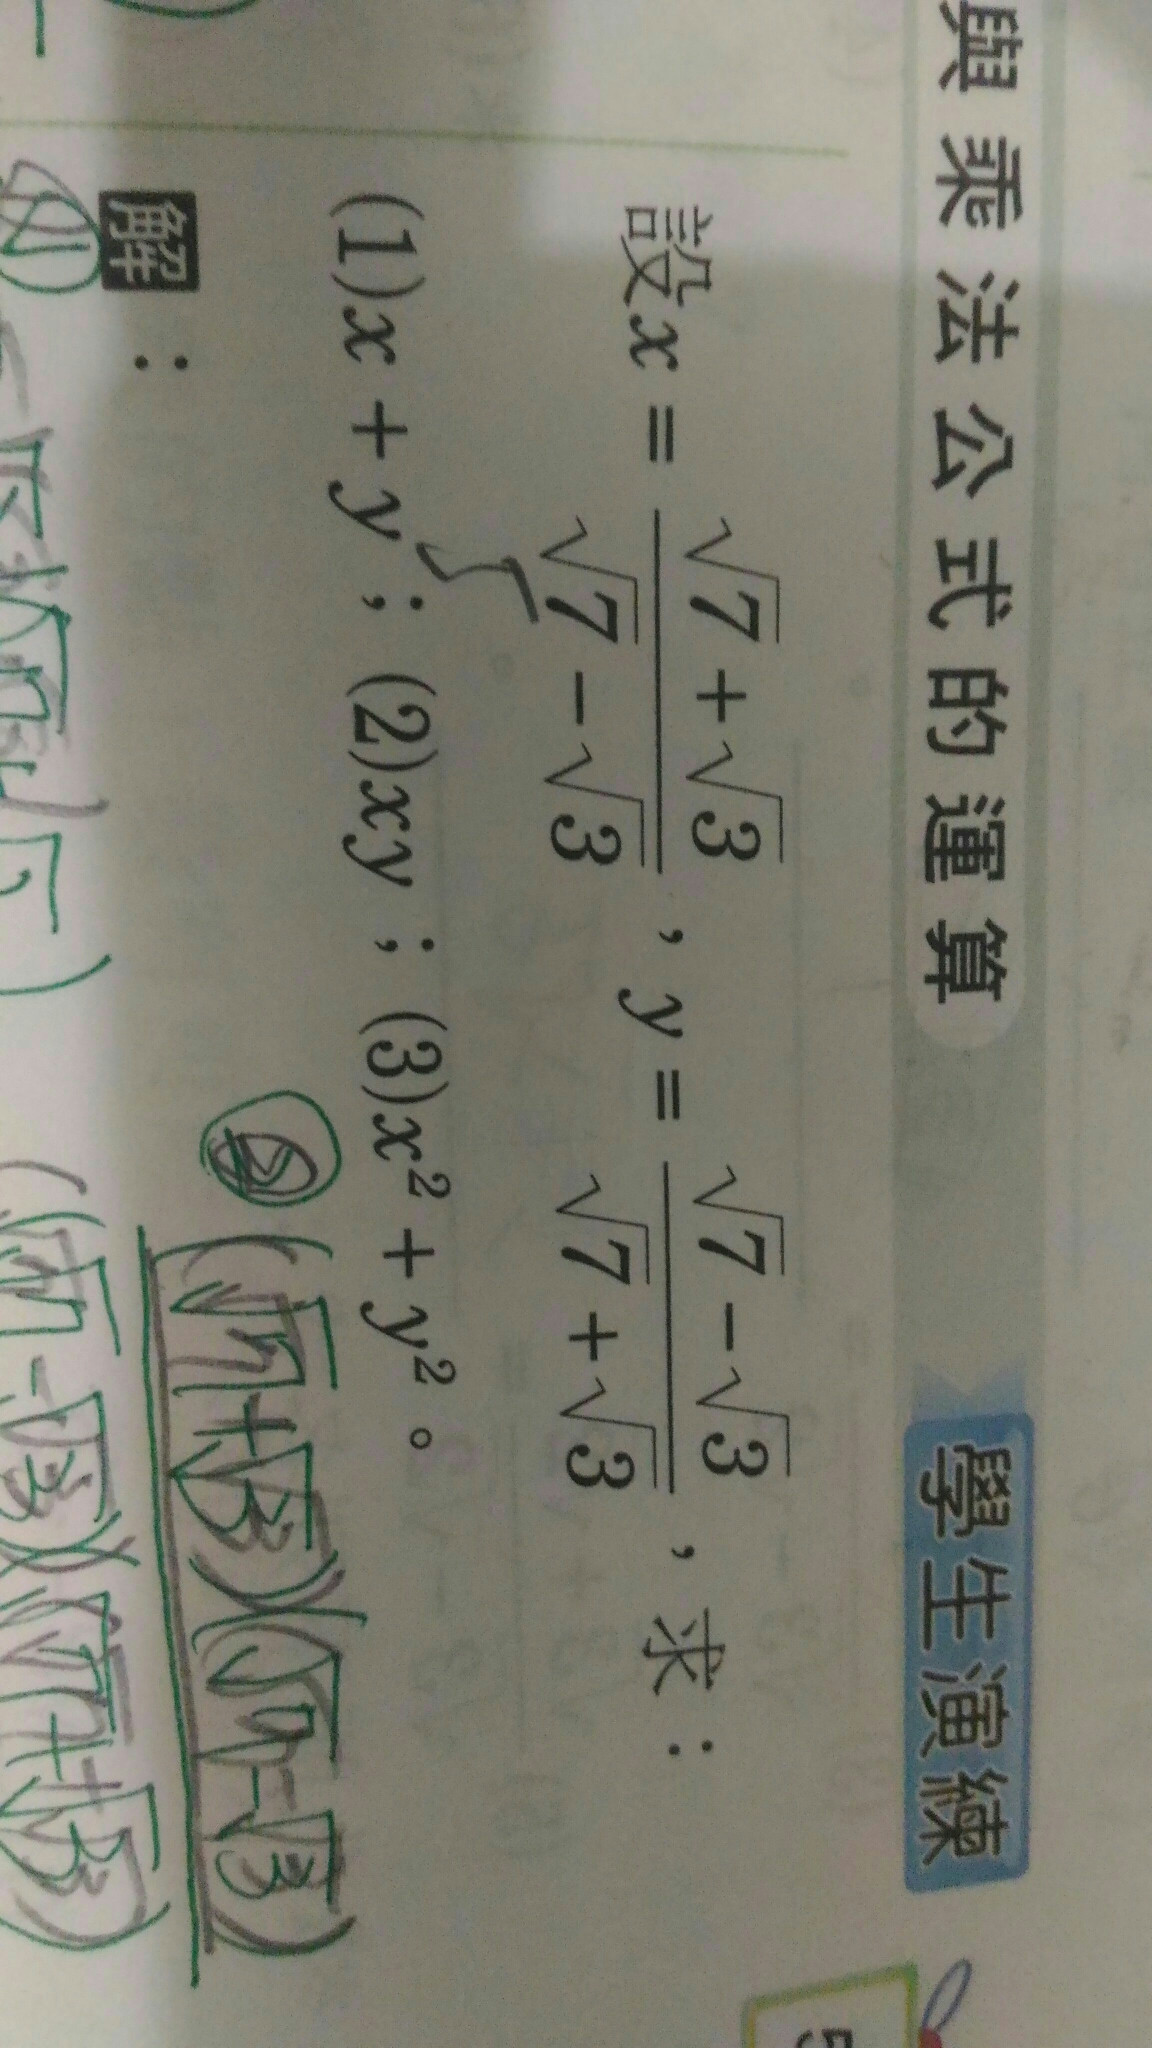 與乘法公式的運算 學生演練
設x = (√7 + √3)/(√7 − √3) , y = (√7 − √3)/(√7 + √3) , 求:
(1)x + y ; (2)xy ; (3)x² + y² 。
解 :
② (√7+√3)(√7-√3)
(√7-√3)(√7+√3)